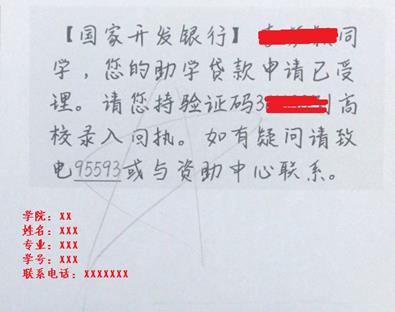 【国家开发银行】 同
学，您的助学贷款申请已受
理。请您持验证码3 到高
校录入回执。如有疑问请致
电95593或与资助中心联系。
学院：XX
姓名：XXX
专业：XXX
学号：XXX
联系电话：XXXXXXX